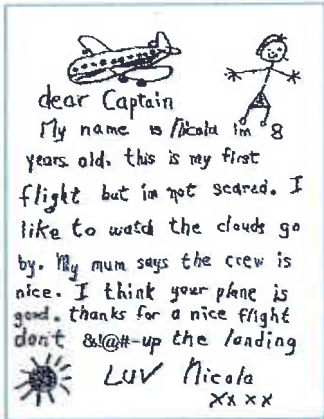 dear Captain
My name is Nicola im 8
years old. this is my first
flight but im not scared. I
like to watch the clouds go
by. My mum says the crew is
nice. I think your plane is
good. thanks for a nice flight
don't &!@#-up the landing
LUV Nicola
xx xx